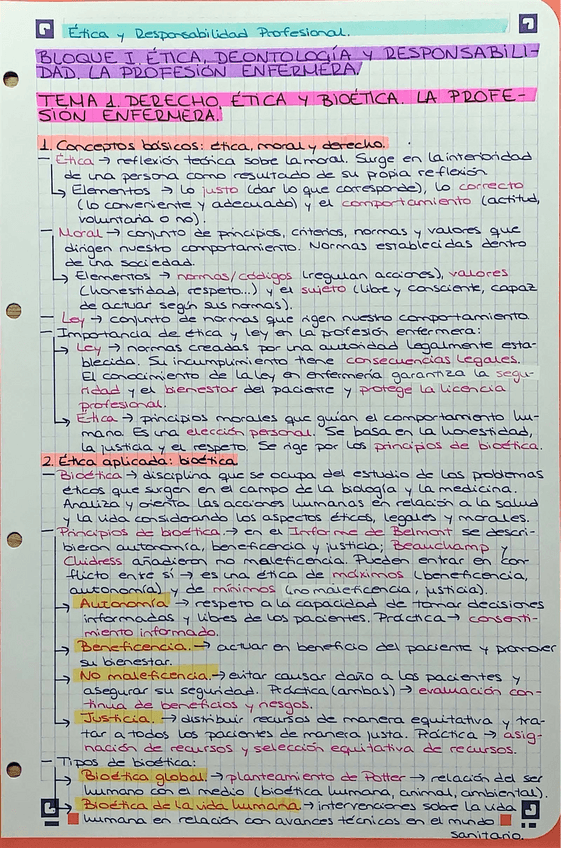 Ética y Responsabilidad Profesional.
BLOQUE I. ÉTICA, DEONTOLOGÍA Y RESPONSABILI-
DAD. LA PROFESIÓN ENFERMERA.
TEMA 1. DERECHO, ÉTICA Y BIOÉTICA. LA PROFE-
SIÓN ENFERMERA.
1. Conceptos básicos: ética, moral y derecho.
- Ética → reflexión teórica sobre la moral. Surge en la interioridad
de una persona como resultado de su propia reflexión.
↳ Elementos → lo justo (dar lo que corresponde), lo correcto
(lo conveniente y adecuado) y el comportamiento (actitud,
voluntaria o no).
- Moral → conjunto de principios, criterios, normas y valores que
dirigen nuestro comportamiento. Normas establecidas dentro
de una sociedad.
↳ Elementos → normas/códigos (regulan acciones), valores
(honestidad, respeto...) y el sujeto (libre y consciente, capaz
de actuar según sus normas).
- Ley → conjunto de normas que rigen nuestro comportamiento.
- Importancia de ética y ley en la profesión enfermera:
→ Ley → normas creadas por una autoridad legalmente esta-
blecida. Su incumplimiento tiene consecuencias legales.
El conocimiento de la ley en enfermería garantiza la segu-
ridad y el bienestar del paciente y protege la licencia
profesional.
→ Ética → principios morales que guían el comportamiento hu-
mano. Es una elección personal. Se basa en la honestidad,
la justicia y el respeto. Se rige por los principios de bioética.
2. Ética aplicada: bioética
- Bioética → disciplina que se ocupa del estudio de los problemas
éticos que surgen en el campo de la biología y la medicina.
Analiza y orienta las acciones humanas en relación a la salud
y la vida considerando los aspectos éticos, legales y morales.
- Principios de bioética. → en el Informe de Belmont se descri-
bieron autonomía, beneficencia y justicia; Beauchamp y
Clidress añadieron no maleficencia. Pueden entrar en con-
flicto entre sí → es una ética de máximos (beneficencia,
autonomía) y de mínimos (no maleficencia, justicia).
→ Autonomía → respeto a la capacidad de tomar decisiones
informadas y libres de los pacientes. Práctica → consenti-
miento informado.
→ Beneficencia. → actuar en beneficio del paciente y promover
su bienestar.
→ No maleficencia. → evitar causar daño a los pacientes y
asegurar su seguridad. Práctica (ambas) → evaluación con-
tinua de beneficios y riesgos.
→ Justicia. → distribuir recursos de manera equitativa y tra-
tar a todos los pacientes de manera justa. Práctica → asig-
nación de recursos y selección equitativa de recursos.
- Tipos de bioética:
→ Bioética global → planteamiento de Potter → relación del ser
humano con el medio (bioética humana, animal, ambiental).
→ Bioética de la vida humana → intervenciones sobre la vida
humana en relación con avances técnicos en el mundo
sanitario.